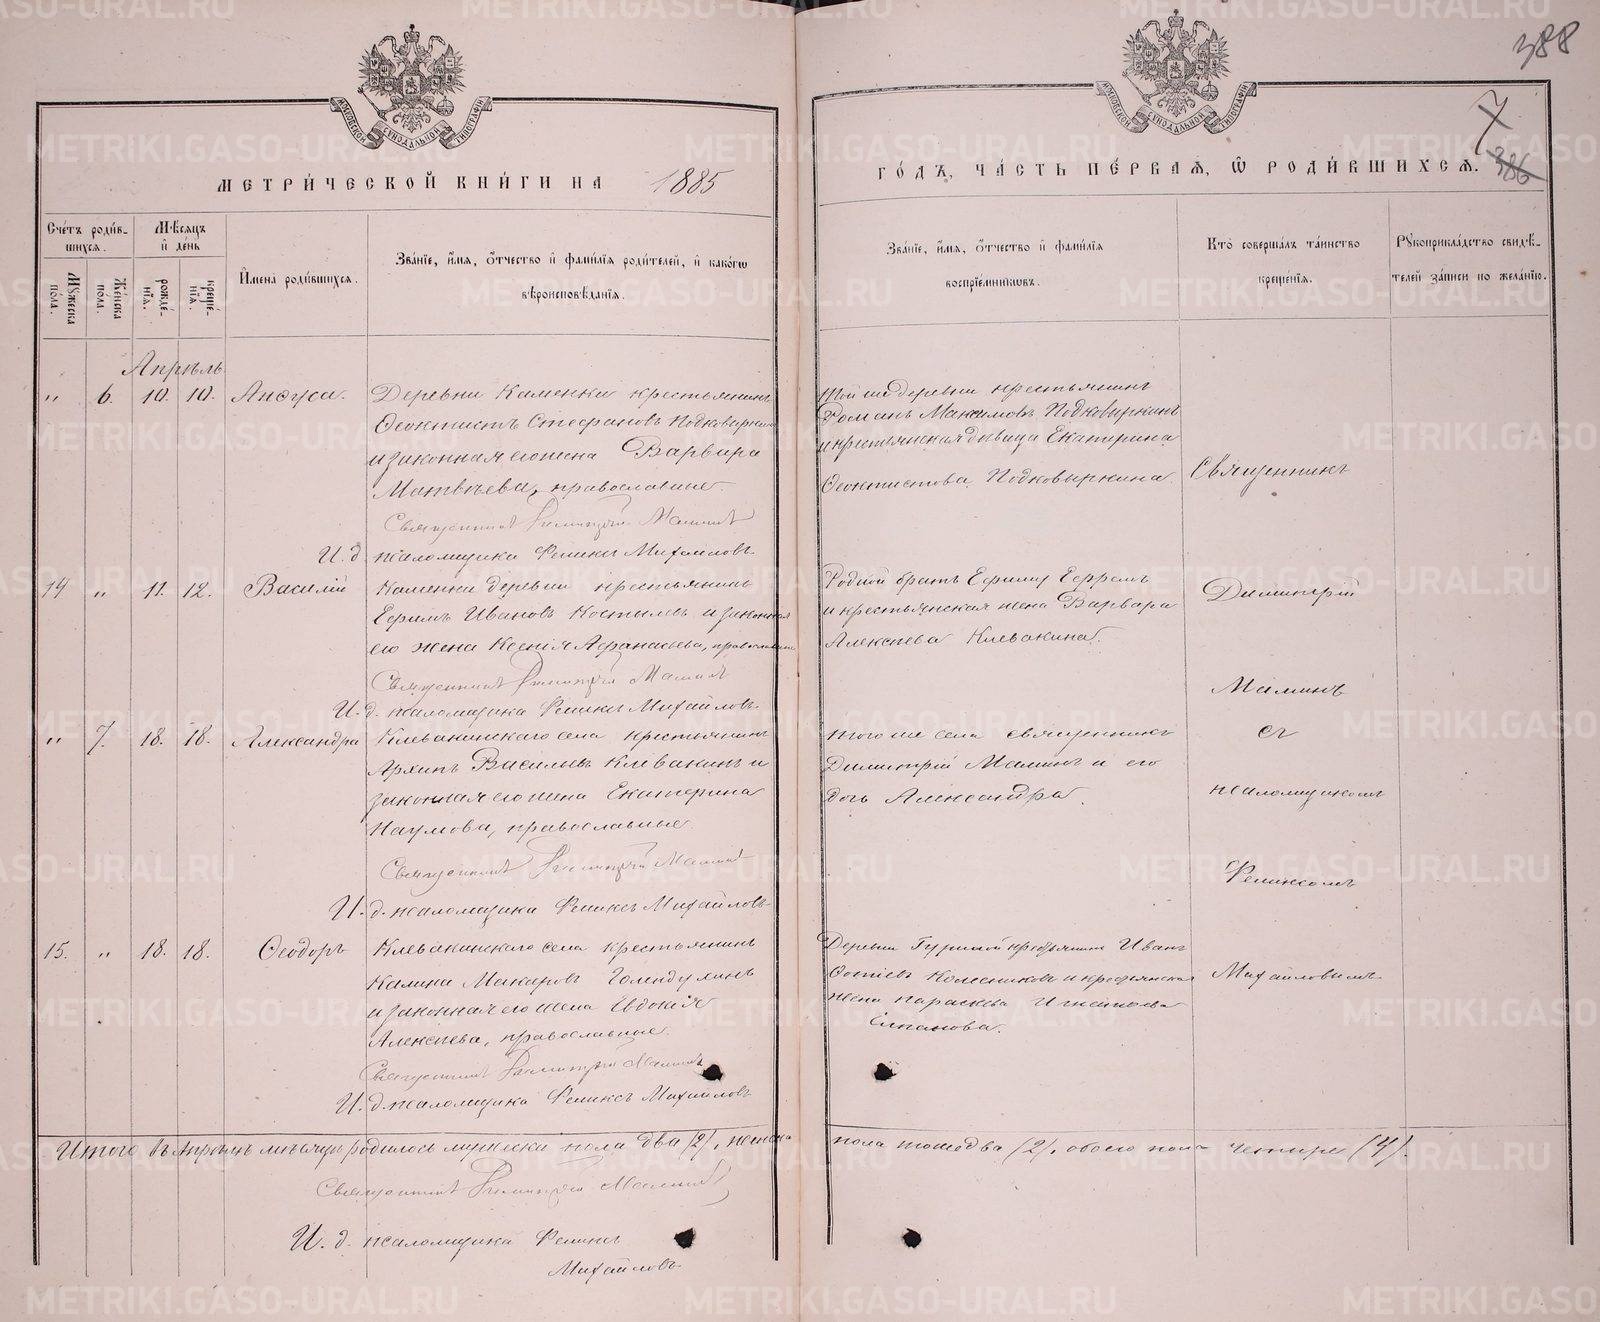 388
7
386
МОСКОВСКОЙ СѴНОДАЛЬНОЙ ТИПОГРАФІИ
МОСКОВСКОЙ СѴНОДАЛЬНОЙ ТИПОГРАФІИ
МЕТРИ́ЧЕСКОЙ КНИ́ГИ НА 1885
ГО́ДЪ, ЧА́СТЬ ПЕ́РВАѦ, Ѡ РОДИ́ВШИХСѦ.
Сче́тъ роди́в-
шихсѧ.
Мꙋ́жеска по́ла.
Же́нска по́ла.
Мѣ́сѧцъ и де́нь
рожде́-нїѧ.
креще́-нїѧ.
Имена̀ роди́вшихсѧ.
Зва́нїе, и́мѧ, о́тчество и фами́лїѧ роди́телей, и како́гѡ
вѣроисповѣ́данїѧ.
Зва́нїе, и́мѧ, о́тчество и фами́лїѧ
воспрїе́мникѡвъ.
Кто̀ соверша́лъ та́инство
креще́нїѧ.
Рꙋкоприкла́дство свидѣ́-
телей за́писи по жела́нїю.
Апрѣль
" 6. 10. 10. Анфуса. Деревни Каменки крестьянинъ
Ѳеоктистъ Стефановъ Подковыркинъ
и законная его жена Варвара
Матвѣева, православные.
Священникъ Димитрій Маминъ
И. д. псаломщика Феликсъ Михайловъ
той же деревни крестьянинъ
Романъ Максимовъ Подковыркинъ
и крестьянская дѣвица Екатерина
Ѳеоктистова Подковыркина.
Священникъ
14 " 11. 12. Василій Каменки деревни крестьянинъ
Ефимъ Ивановъ Костылевъ и законная
его жена Ксенія Афанасьева, православные
Священникъ Димитрій Маминъ
И. д. псаломщика Феликсъ Михайловъ
Родной братъ Ефиму Ефремъ
и крестьянская жена Варвара
Алексѣева Клевакина.
Димитрій
Маминъ
" 7. 18. 18. Александра Клевакинскаго села крестьянинъ
Архипъ Васильевъ Клевакинъ и
законная его жена Екатерина
Наумова, православные.
Священникъ Димитрій Маминъ
И. д. псаломщика Феликсъ Михайловъ
того же села священникъ
Димитрій Маминъ и его
дочь Александра.
съ
псаломщикомъ
Феликсомъ
15. " 18. 18. Ѳеодоръ Клевакинскаго села крестьянинъ
Калина Макаровъ Голендухинъ
и законная его жена Евдокія
Алексѣева, православные.
Священникъ Димитрій Маминъ
И. д. псаломщика Феликсъ Михайловъ
Деревни крестьянинъ Иванъ
Колесниковъ и крестьянская
жена Параскева Игнатьева
Михайловымъ
Итого въ Апрѣлѣ мѣсяцѣ родилось мужеска пола два (2), женска пола тоже два (2), обоего пола четыре (4).
Священникъ Димитрій Маминъ
И. д. псаломщика Феликсъ
Михайловъ
METRIKI.GASO-URAL.RU